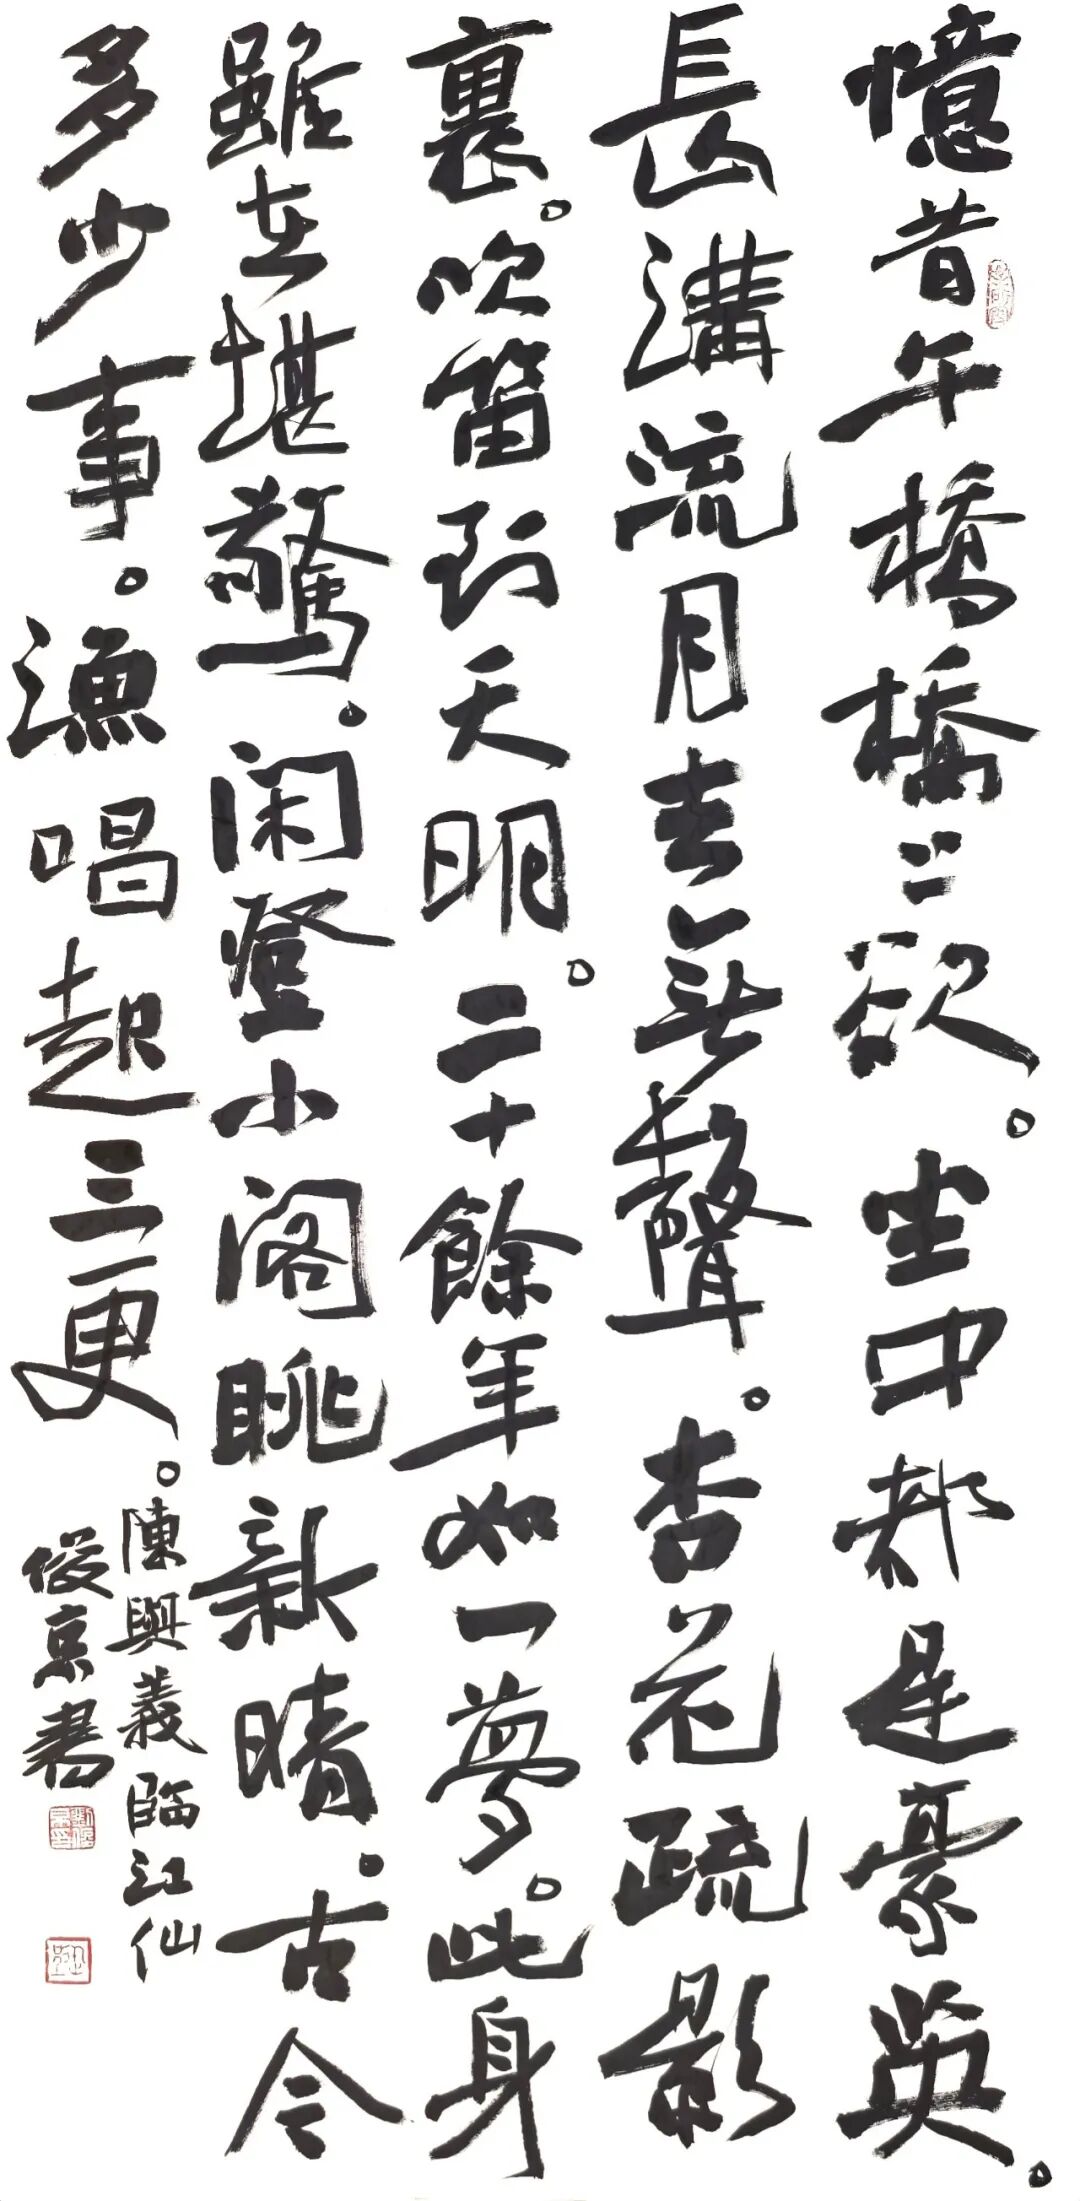 憶昔午橋橋上欲。坐中都是豪英。
長溝流月去無聲。杏花疏影
裏。吹笛到天明。二十餘年如一夢。此身
雖在堪驚。闲登小阁眺新晴。古今
多少事。漁唱起三更。
陳與義臨江仙
俊京書